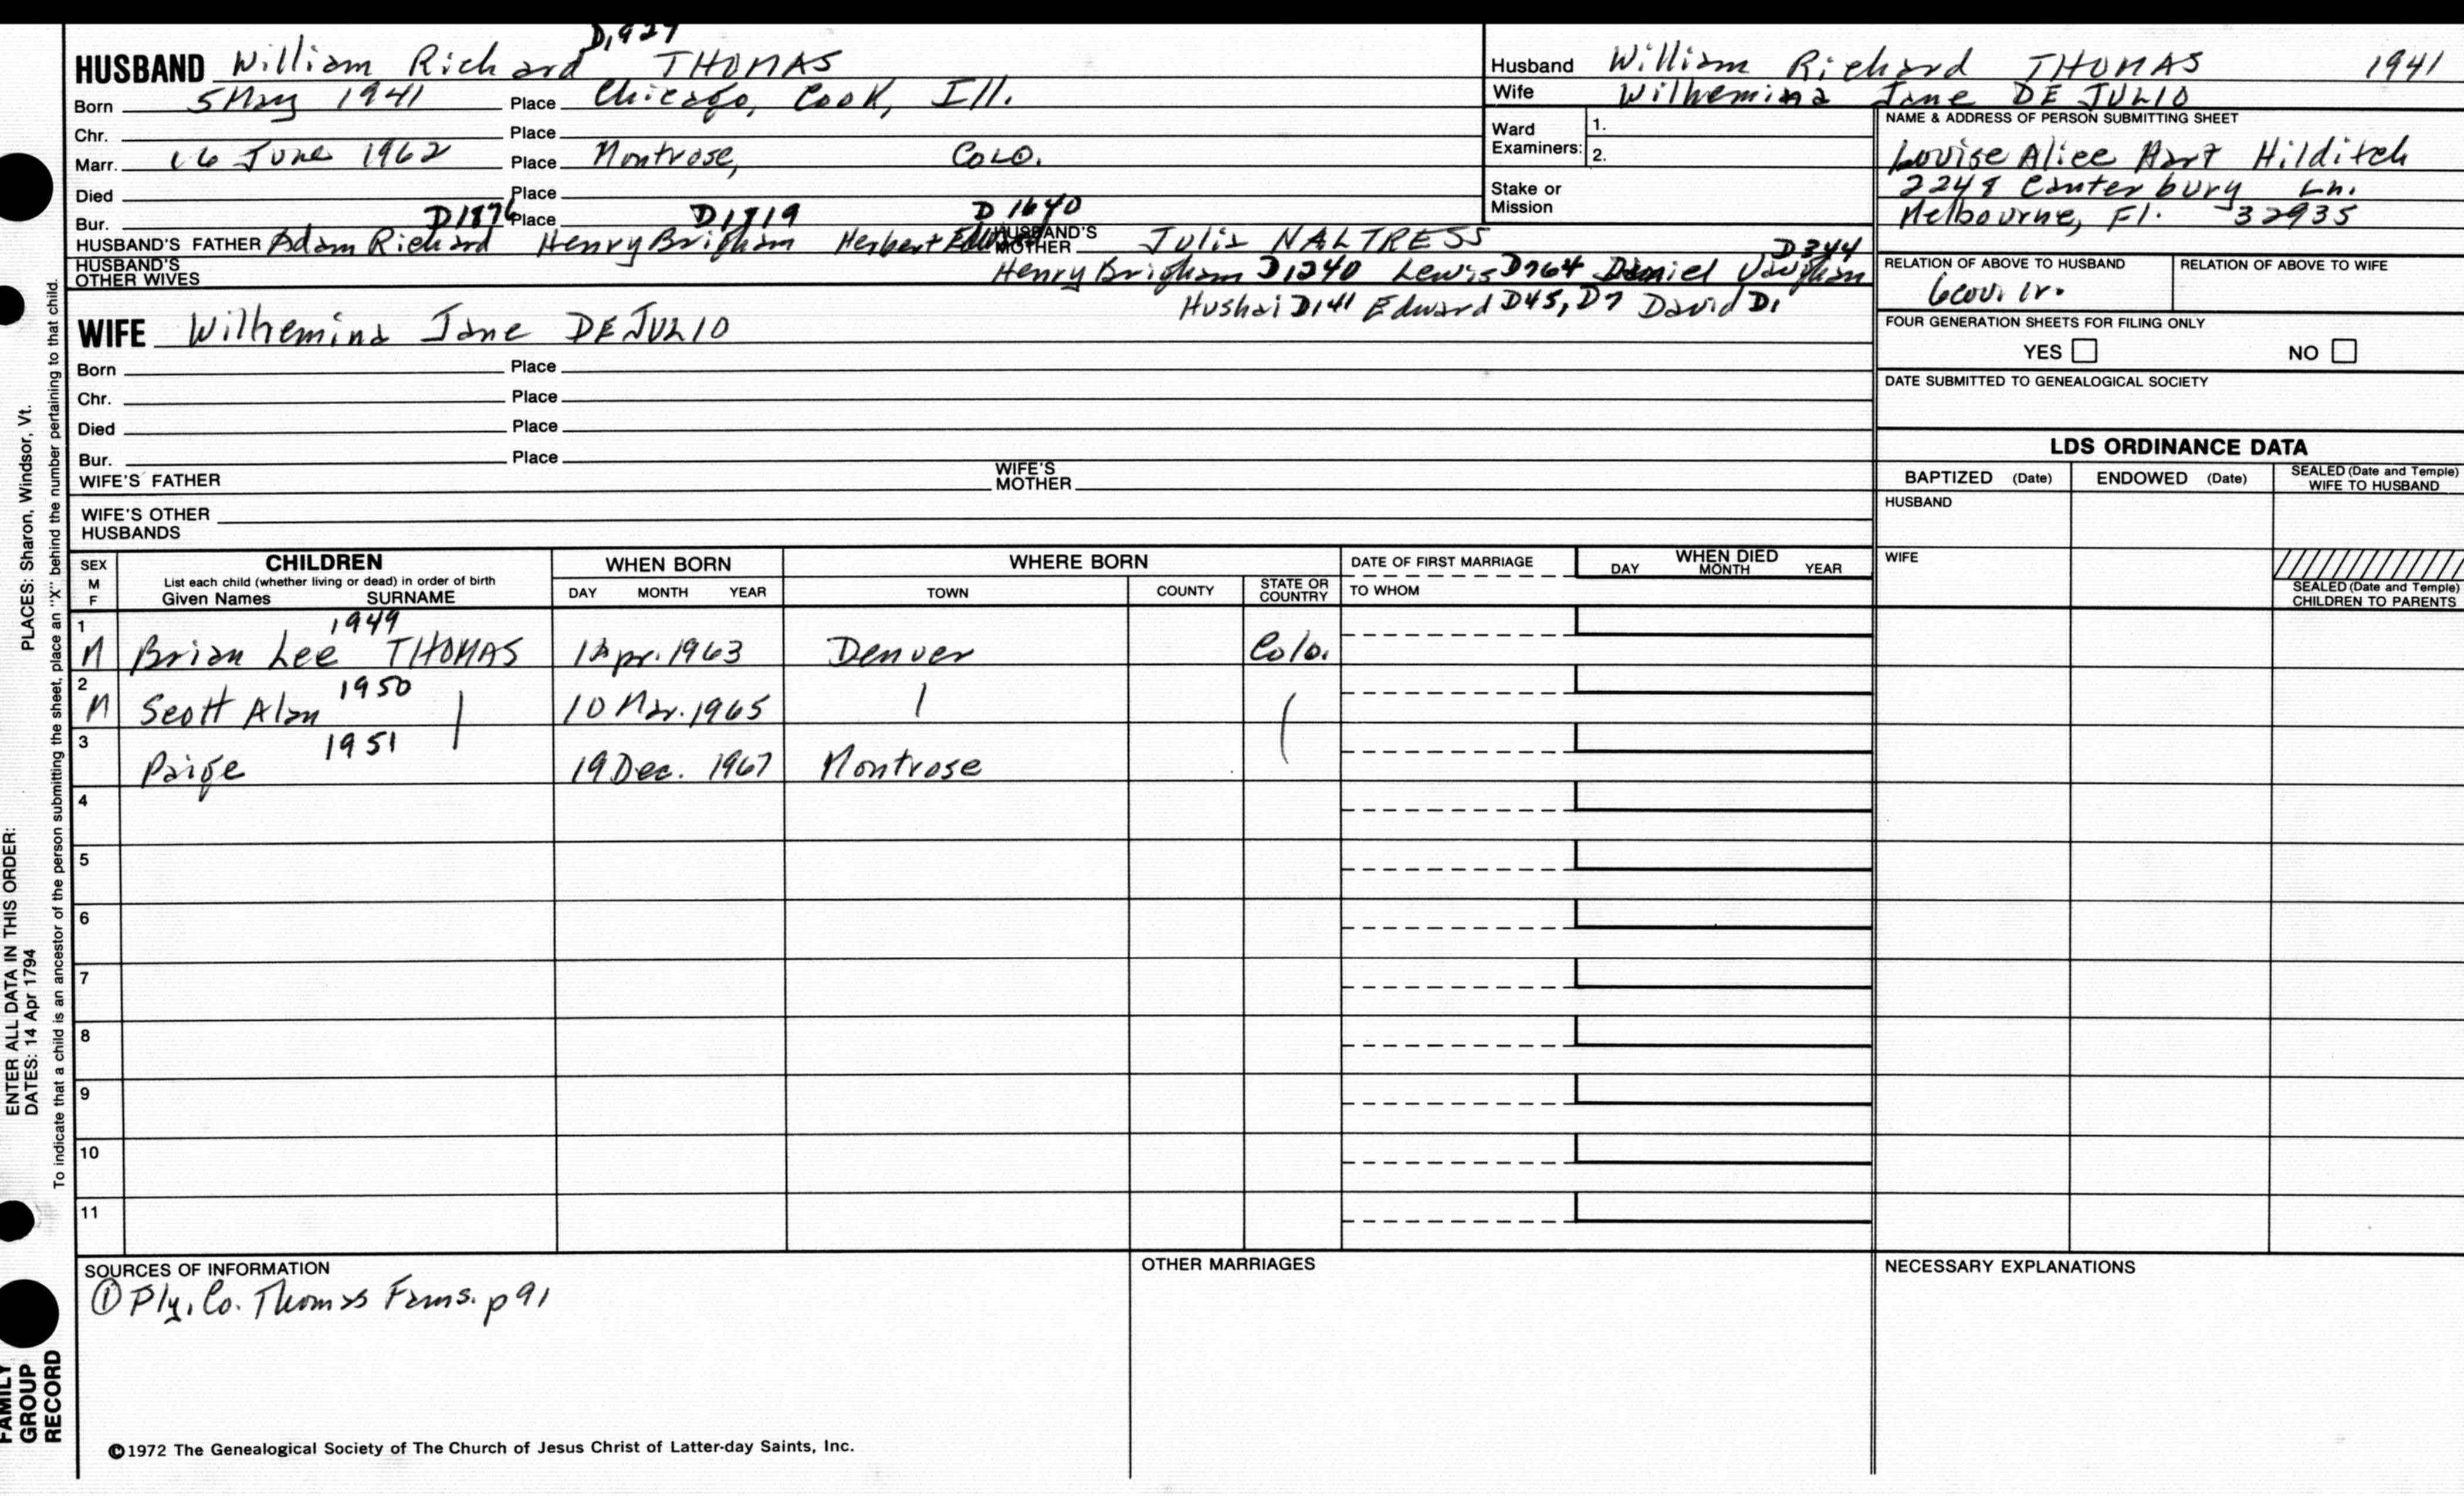 D1927
HUSBAND William Richard THOMAS
Born 5 May 1941 Place Chicago, Cook, Ill.
Chr. Place
Marr. 16 June 1962 Place Montrose, COLO.
Died Place
Bur. Place D1876 D1819 D1640
HUSBAND'S FATHER Adam Richard Henry Brigham Herbert HUSBAND'S MOTHER Julia NALTRESS
HUSBAND'S OTHER WIVES Henry Brigham D1240 Lewis D764 Daniel Vaughan D344
Hushai D141 Edward D45, D7 David D1
WIFE Wilhemina Jane DEJULIO
Born Place
Chr. Place
Died Place
Bur. Place
WIFE'S FATHER WIFE'S MOTHER
WIFE'S OTHER HUSBANDS
Husband William Richard THOMAS 1941
Wife Wilhemina Jane DE JULIO
Ward Examiners: 1.
2.
Stake or Mission
NAME & ADDRESS OF PERSON SUBMITTING SHEET
Louise Alice Hart Hilditch
2248 Canterbury Ln.
Melbourne, Fl. 32935
RELATION OF ABOVE TO HUSBAND RELATION OF ABOVE TO WIFE
6cousin
FOUR GENERATION SHEETS FOR FILING ONLY
YES NO
DATE SUBMITTED TO GENEALOGICAL SOCIETY
LDS ORDINANCE DATA
BAPTIZED (Date) ENDOWED (Date) SEALED (Date and Temple) WIFE TO HUSBAND
HUSBAND
WIFE
SEALED (Date and Temple) CHILDREN TO PARENTS
SEX M F CHILDREN WHEN BORN WHERE BORN DATE OF FIRST MARRIAGE WHEN DIED
List each child (whether living or dead) in order of birth
Given Names SURNAME DAY MONTH YEAR TOWN COUNTY STATE OR COUNTRY TO WHOM DAY MONTH YEAR
1949
1 M Brian Lee THOMAS 1 Apr. 1963 Denver Colo.
1950
2 M Scott Alan 10 Mar. 1965
1951
3 Paige 19 Dec. 1967 Montrose
4
5
6
7
8
9
10
11
SOURCES OF INFORMATION
① Ply. Co. Thomas Fams. p 91
OTHER MARRIAGES
NECESSARY EXPLANATIONS
©1972 The Genealogical Society of The Church of Jesus Christ of Latter-day Saints, Inc.
FAMILY GROUP RECORD
ENTER ALL DATA IN THIS ORDER:
DATES: 14 Apr 1794 PLACES: Sharon, Windsor, Vt.
To indicate that a child is an ancestor of the person submitting the sheet, place an "X" behind the number pertaining to that child.